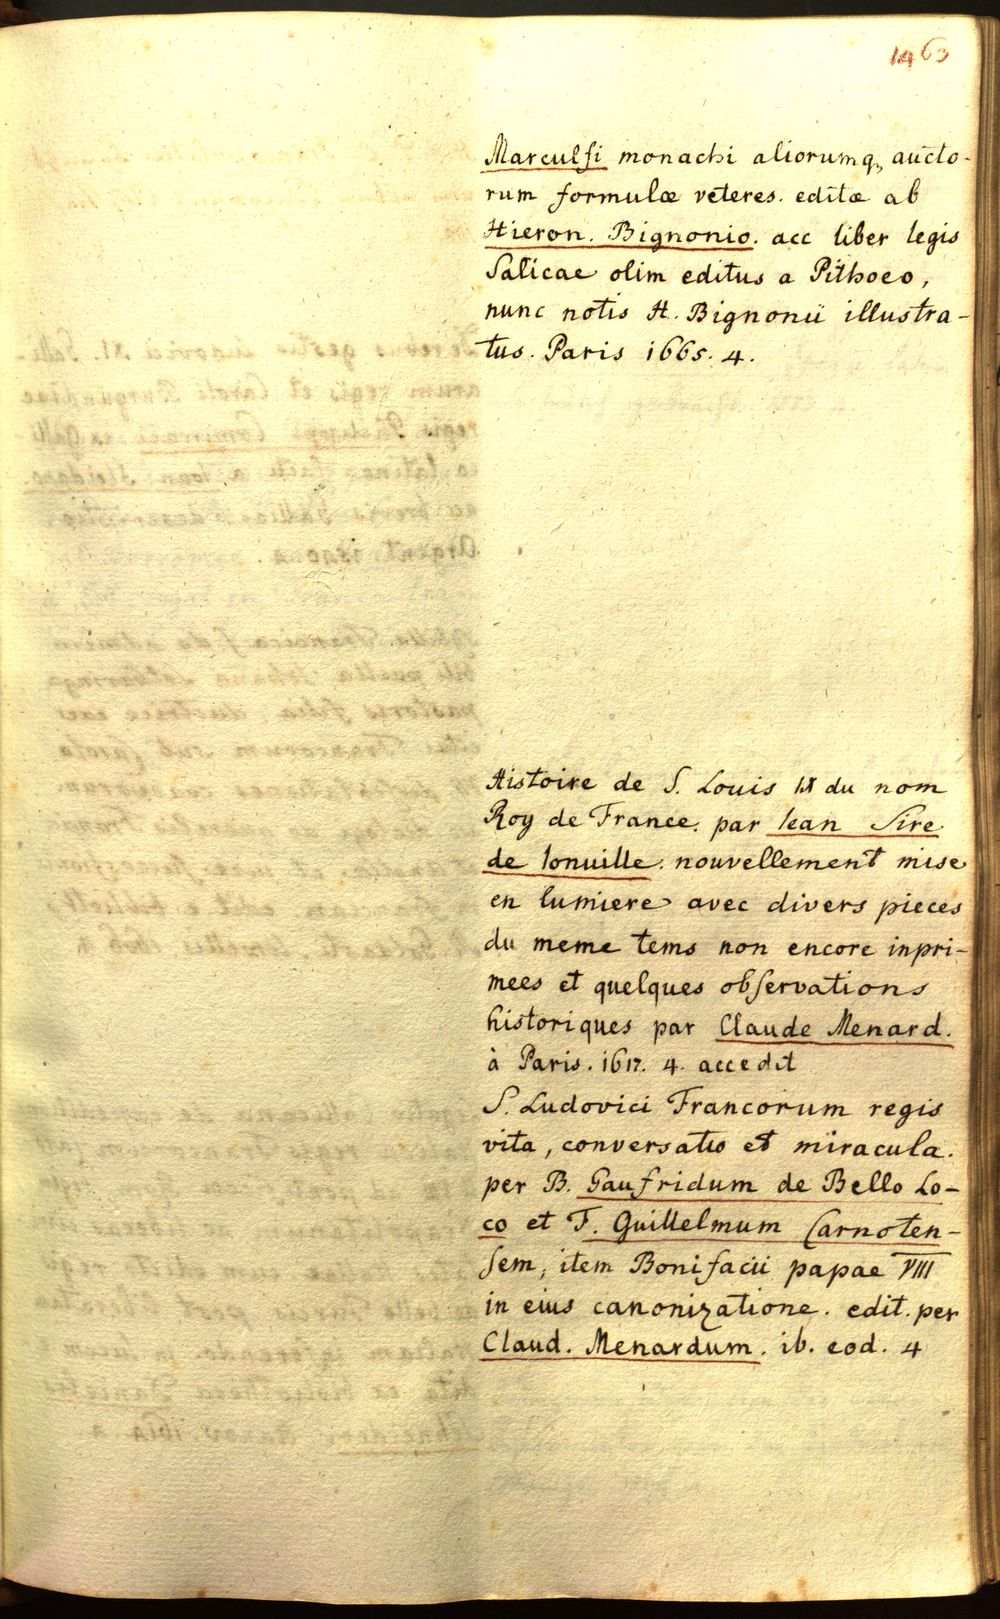 1463
Marculfi monachi aliorumq, aucto-
rum formulæ veteres. editæ ab
Hieron. Bignonio. acc liber legis
Salicae olim editus a Pithoeo,
nunc notis H. Bignonii illustra-
tus. Paris 1665. 4.
Histoire de S. Louis IX du nom
Roy de France. par Iean Sire
de Ionuille. nouvellement mise
en lumiere avec divers pieces
du meme tems non encore inpri-
mees et quelques observations
historiques par Claude Menard.
à Paris. 1617. 4. accedit
S. Ludovici Francorum regis
vita, conversatio et miracula.
per B. Gaufridum de Bello Lo-
co et F. Guillelmum Carnoten-
sem, item Bonifacii papae VIII
in eius canonizatione. edit. per
Claud. Menardum. ib. eod. 4